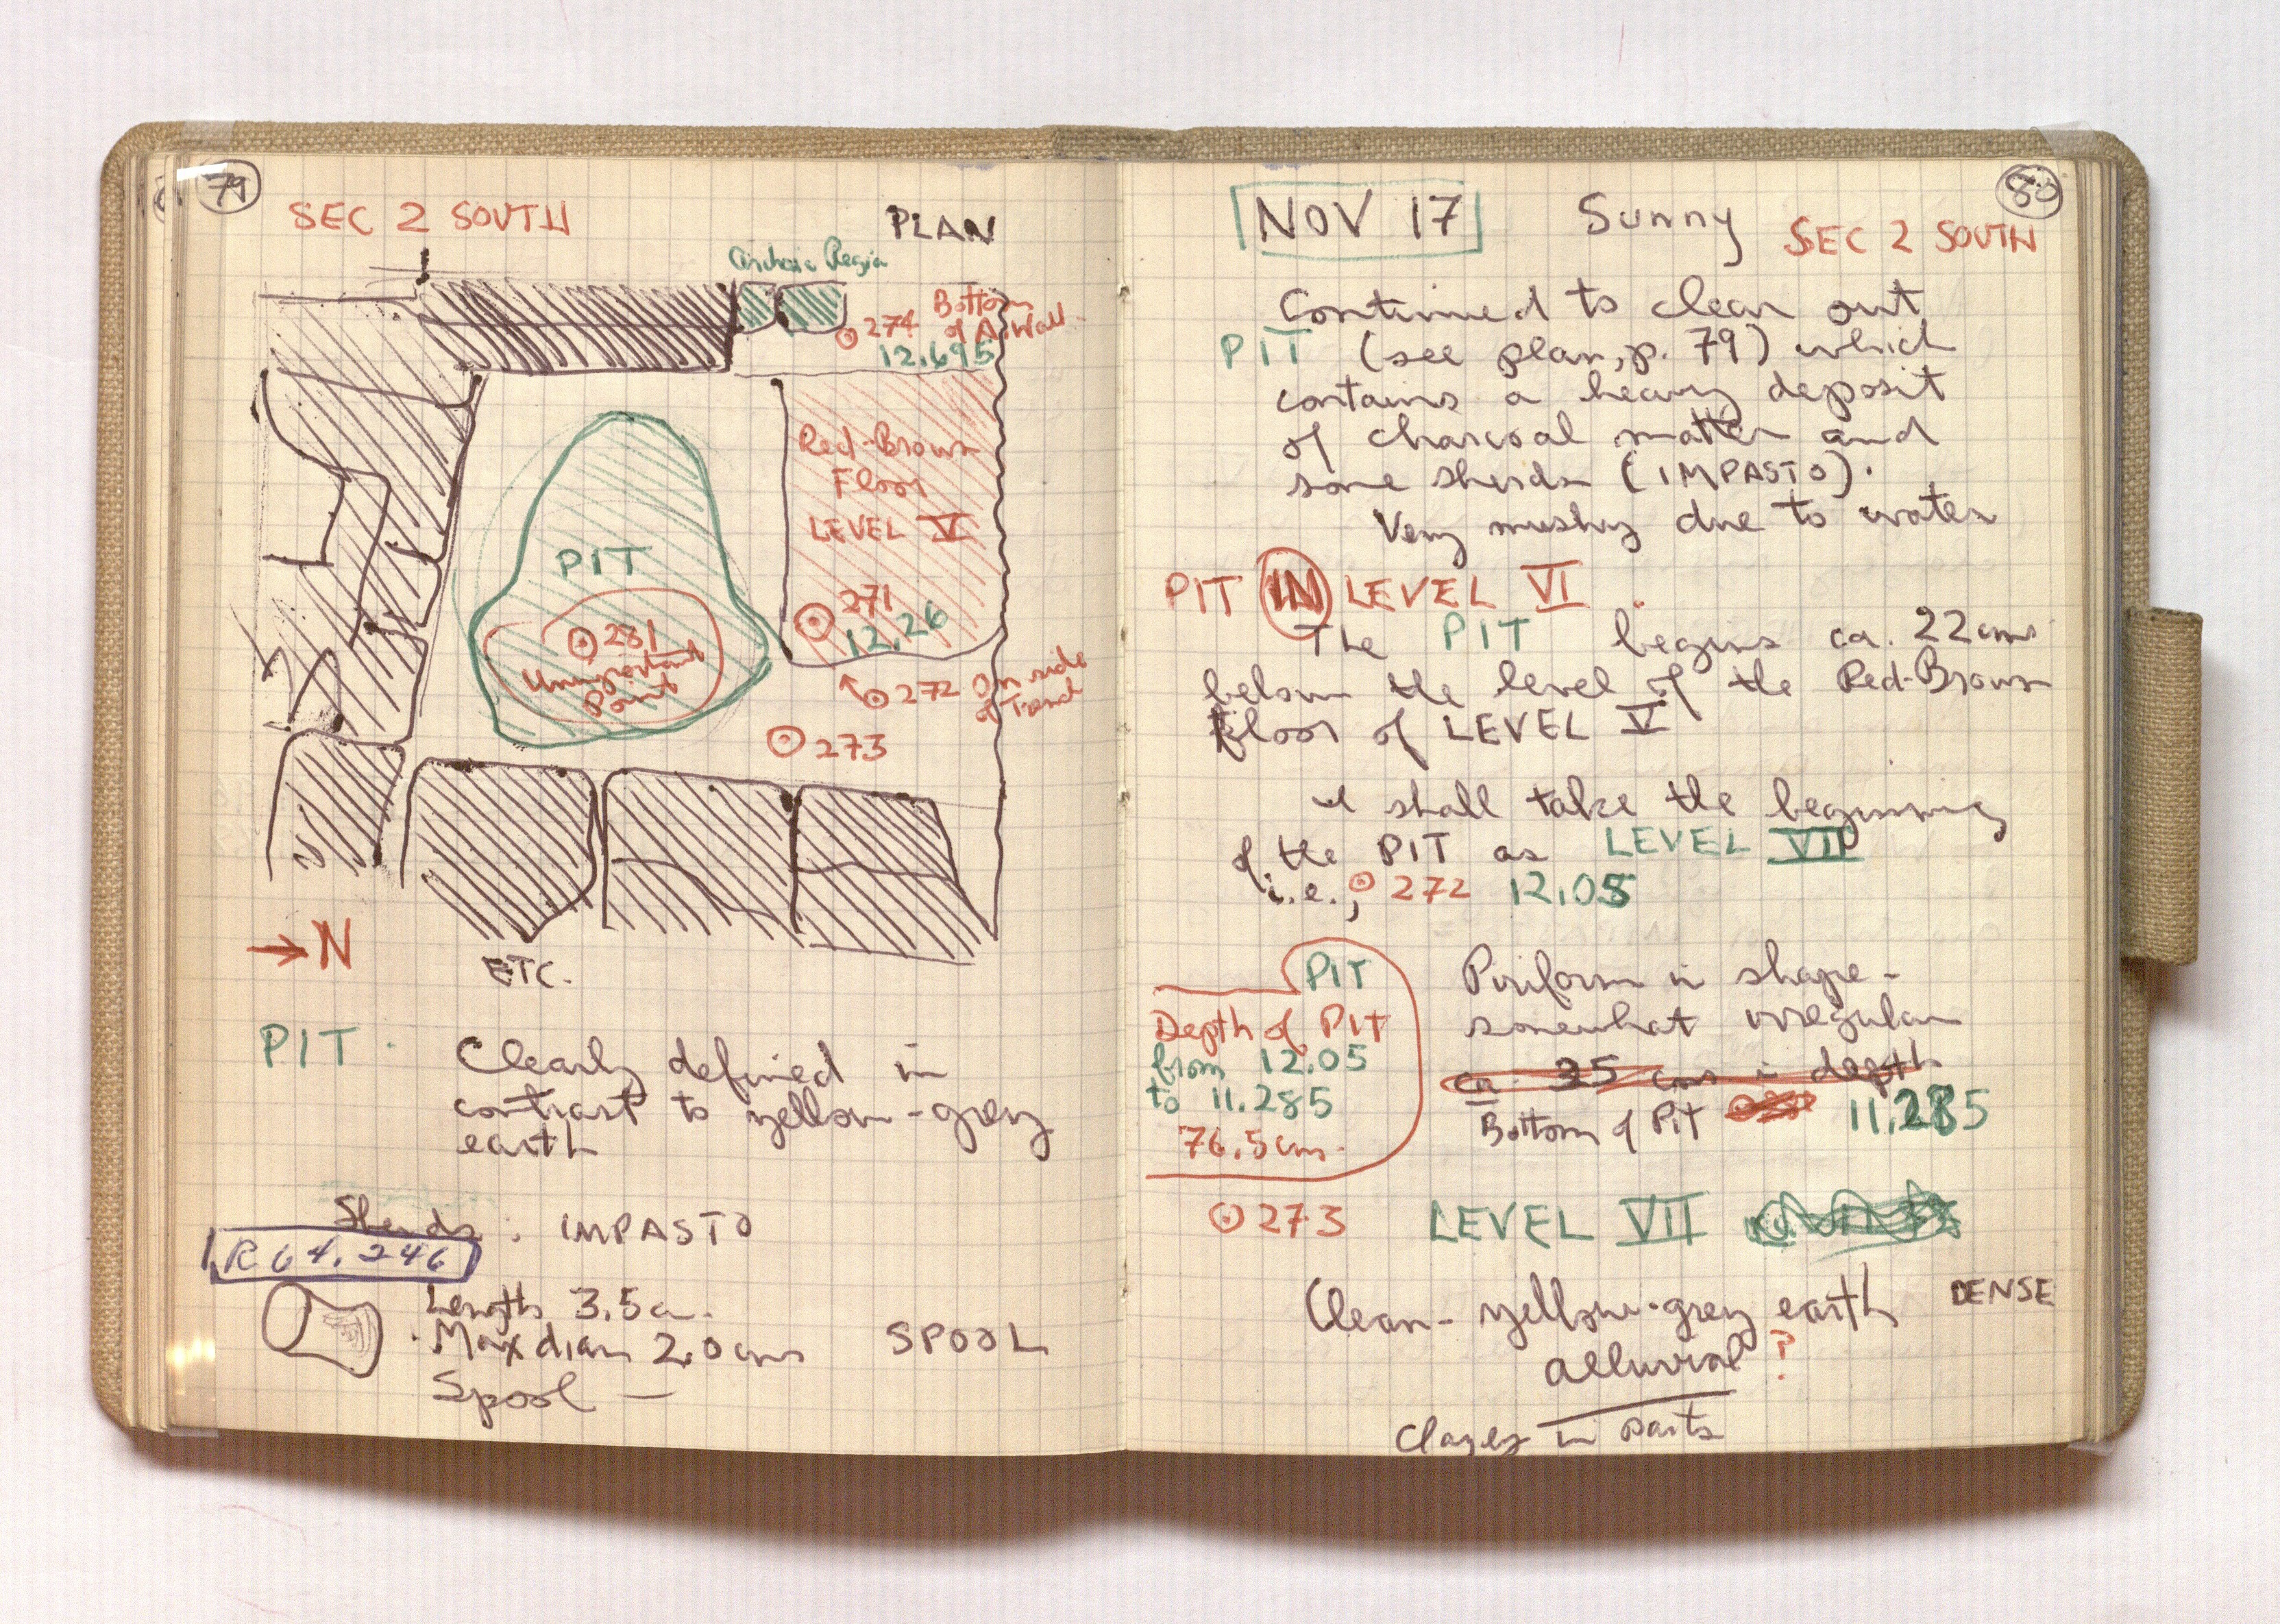 79
SEC 2 SOUTH
PLAN
Archaic Regia
274 Bottom
of A. Wall
12.695
Red-Brown
Floor
LEVEL V
PIT
271
12.26
281
Unimportant
Point
272 on side
of Trench
273
→ N
ETC.
PIT. Clearly defined in
contrast to yellow-grey
earth
Sherds: IMPASTO
R64.246
Length 3.5 c.
Max diam 2.0 cms
SPOOL
Spool —
80
NOV 17 Sunny
SEC 2 SOUTH
Continued to clear out
PIT (see plan, p. 79) which
contains a heavy deposit
of charcoal matter and
some sherds (IMPASTO).
Very mushy due to water
PIT IN LEVEL VI
The PIT begins ca. 22 cms
below the level of the Red-Brown
Floor of LEVEL V
I shall take the beginning
of the PIT as LEVEL VII
i.e., 272 12.05
PIT
Depth of PIT
from 12.05
to 11.285
76.5 cm.
Piriform in shape -
somewhat irregular
ca. 35 cms in depth
Bottom of PIT 11.285
273 LEVEL VII
Clean - yellow-grey earth DENSE
alluvial ?
Clayey in parts